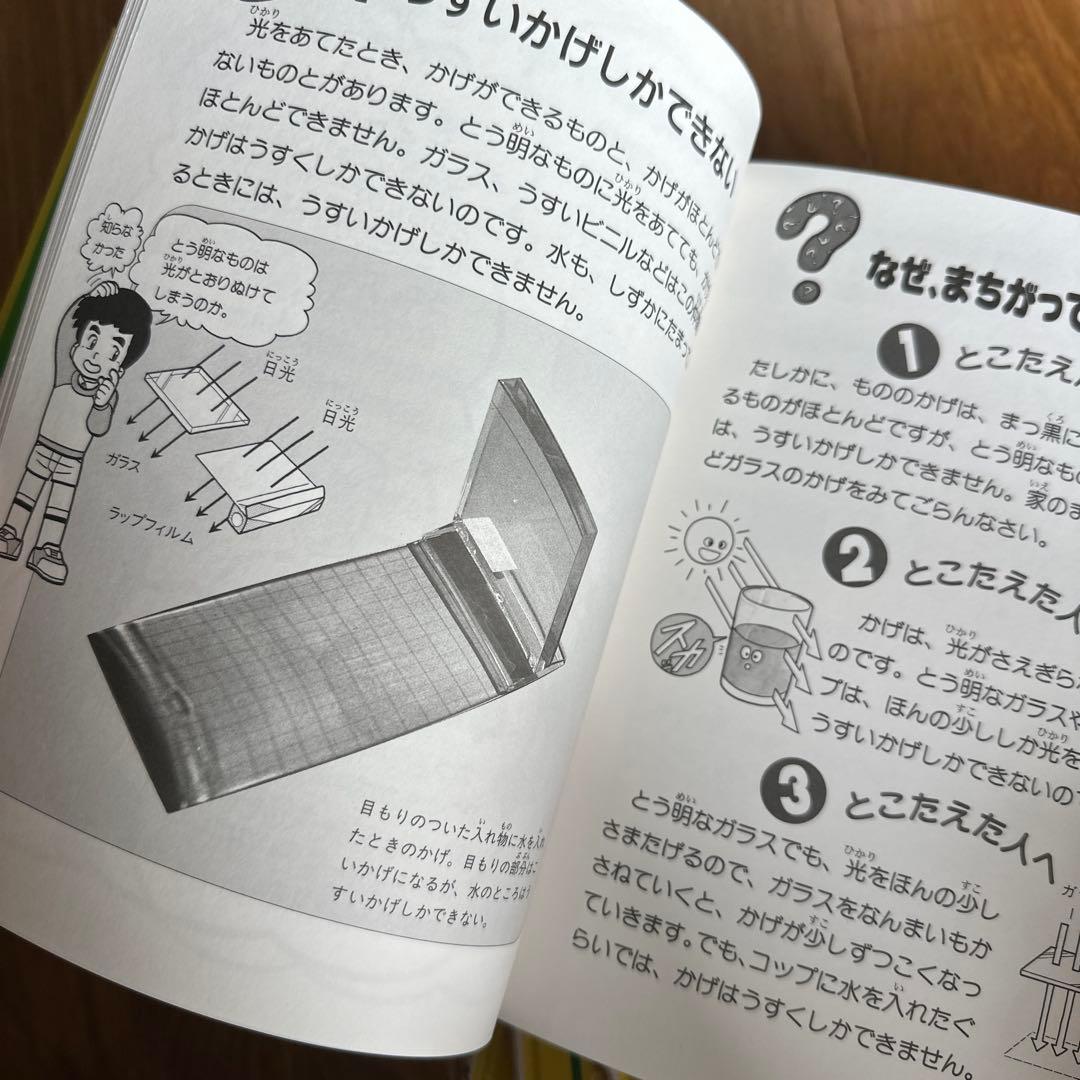 うすいかげしかできない
光をあてたとき、かげができるものと、かげがほとんど
ないものとがあります。とう明なものに光をあてても、か
ほとんどできません。ガラス、うすいビニルなどはこの
かげはうすくしかできないのです。水も、しずかにたまって
るときには、うすいかげしかできません。
知らな
かった
とう明なものは
光がとおりぬけて
しまうのか。
日光
日光
ガラス
ラップフィルム
目もりのついた入れ物に水を入れ
たときのかげ。目もりの部分はこ
いかげになるが、水のところはう
すいかげしかできない。
?
なぜ、まちがって
1 とこたえた
たしかに、もののかげは、まっ黒に
るものがほとんどですが、とう明なもの
は、うすいかげしかできません。家のま
どガラスのかげをみてごらんなさい。
2 とこたえた人
スカッ
かげは、光がさえぎら
のです。とう明なガラスや
プは、ほんの少ししか光を
うすいかげしかできないの
3 とこたえた人へ
とう明なガラスでも、光をほんの少し
さまたげるので、ガラスをなんまいもか
さねていくと、かげが少しずつこくなっ
ていきます。でも、コップに水を入れたぐ
らいでは、かげはうすくしかできません。
ガ